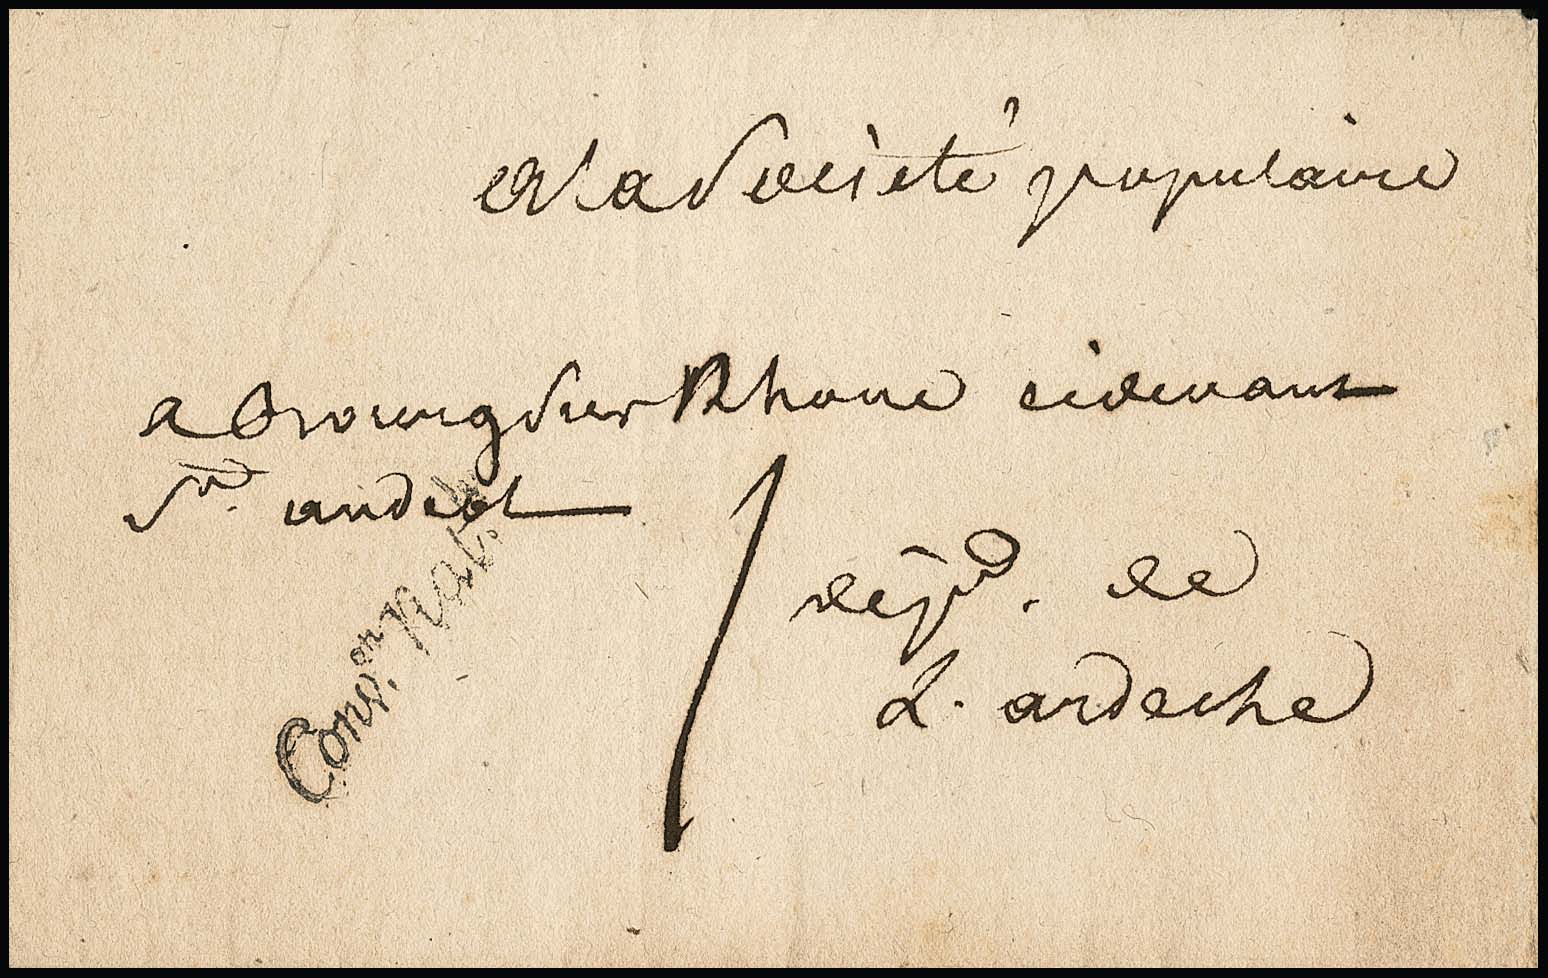 a la Société populaire
a bourg sur Rhone cidevant
St. andeol
dép. de
L. ardeche
Conv.on Nat.le